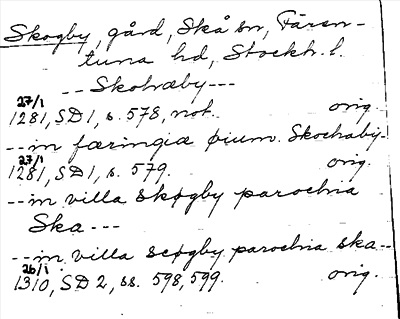 Skogby, gård, Skå sn, Fären-
tuna hd, Stockh. l.
-- Skohæby ---
27/1 1281, SD 1, s. 578, not. orig.
-- in færingiæ øium. Skochaby-
27/1 1281, SD 1, s. 579. orig.
-- in villa skøgby parochia
Ska ---
-- in villa scøgby parochia ska --
26/1 1310, SD 2, ss. 598, 599. orig.